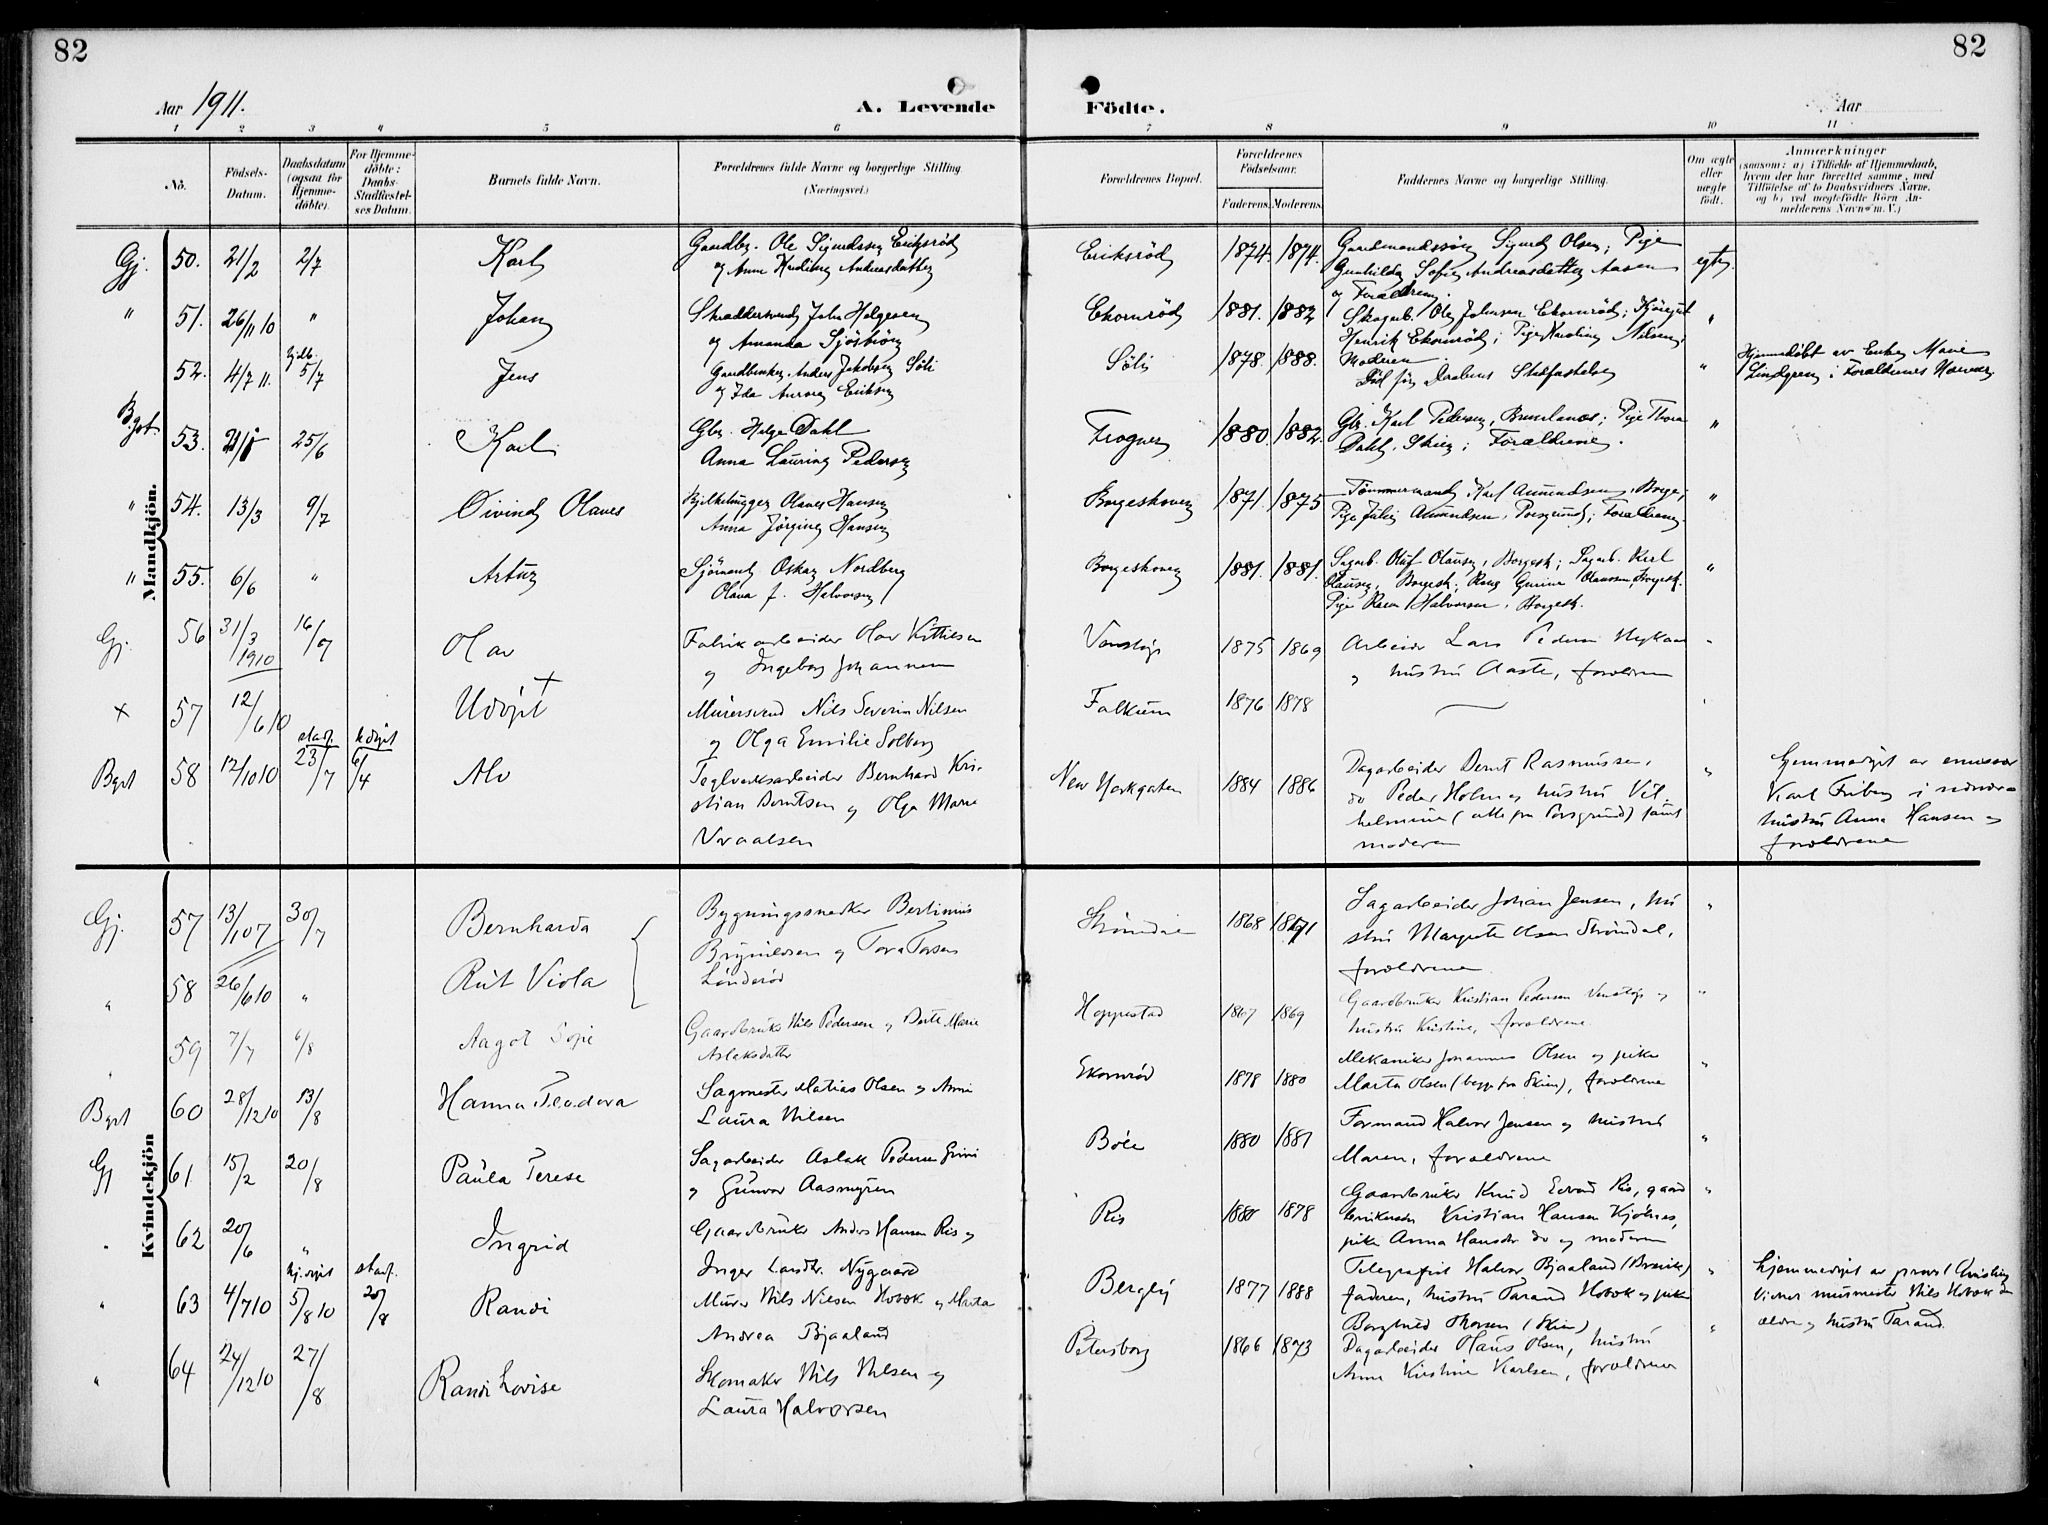 82
82
Aar 1911.
A. Levende
Födte.
Aar
1 2 3 4 5 6 7 8 9 10 11
No.
Födsels-
Datum.
Daabsdatum
(ogsaa for
Hjemme-
döbte).
For Hjemme-
döbte:
Daabs-
Stadfæstel-
ses Datum.
Barnets fulde Navn.
Forældrenes fulde Navne og borgerlige Stilling.
(Næringsvei.)
Forældrenes Bopæl.
Forældrenes
Födselsaar.
Faderens. Moderens.
Faddernes Navne og borgerlige Stilling.
Om ægte
eller
uægte
födt.
Anmærkninger
(saasom: a) i Tilfælde af Hjemmedaab,
hvem der har forrettet samme, med
Tilföielse af to Daabsvidners Navne,
og b) ved uægtefödte Börn An-
melderens Navn o. m. V.)
Mandkjön.
Gj. 50. 21/2 2/7 Karl
Gaardbr. Ole Sigurdsen Eriksröd
og Anne Andreasdatter
Eriksröd 1874. 1874.
Gaardmandssön Sigurd Olsen; Pige
Gunhilda Sofie Andreasdatter Aasen
og Forældrene.
" 51. 26/11 10 " Johan
Skræddersvend John Helgesen
og Amanda Sjösbiörn
Ekornröd 1881. 1882
Skogarb. Ole Johnsen Ekornröd;
Henrik Ekornröd; Pige Karoline Nilsen;
Moderen.
52. 4/7 11. hjdb. 5/7 Jens
Gaardbruker Anders Jakobsen Söli
og Ida Aurora Eriksen
Söli 1878. 1888.
Död för Daabens Stadfæstelse
"
Hjemmedöbt av Enke Marie
Lindgren i Forældrenes Nærvær
Bgst. 53. 25/6 Karl
Gbr. Helge Dahl
Anna Laurine Pedersen
Frogner 1880. 1882.
Gbr. Karl Pedersen, Brunlanes; Pige Thora
Dahl, Skien; Forældrene.
"
" 54. 13/3 9/7 Öivind Olaves
Olaves Hansen
Anna Jörgine Hansen
Borgeskoven 1871. 1875
Tömmermand Karl Amundsen, Borge;
Pige Julie Amundsen, Porsgrund; Forældrene.
"
" 55. 6/6 " Artur
Sjömand Oskar Nordberg
Olava J. Halvorsen
Borgeskoven 1881. 1881.
Sagarb. Oluf Olausen, Borgesk; Sagarb. Karl
Olausen, Borgesk; Gurine Olaussen, Borgesk.
Pige Halvorsen, Borgesk.
"
Gj. 56 31/3 1910 16/7 Olav
Fabrikarbeider Olav Kittilsen
og Ingeborg Johannesen
Venstöp 1875 1869
Arbeider Lars Pedersen Nykaas
og hustru Aaste, forældrene
"
× 57 12/6 10 Udöpt ×
Murersvend Nils Severin Nilsen
og Olga Emilie Solberg
Falkum 1876 1878
Bgst 58 12/10 10 stadf. 23/7 hdöpt 6/4 Alv
Teglverksarbeider Bernhard Kri-
stian Berntsen og Olga Marie
Vraalsen
New Yorkgaten 1884 1886
Dagarbeider Bernt Rasmussen,
do Peder Holm og hustru Vil-
helmine (alle fra Porsgrund) samt
moderen
"
Hjemmedöpt av emissær
Karl Friberg i nærvær av
hustru Anna Hansen og
forældrene
Kvindekjön
Gj. 57 13/10 7 30/7 Bernharda
Bygningssnedker Bertinius
Brynildsen og Tora Torsen
Lönderöd
Strömdal 1868 1871
Sagarbeider Johan Jensen, hu
stru Margrete Olsen Strömdal,
forældrene
"
" 58 26/6 10 " Rut Viola
" 59 7/7 6/8 Aagot Sofie
Gaardbruker Nils Pedersen og Berte Marie
Aslaksdatter
Hoppestad 1867 1869
Gaardbruker Kristian Pedersen Venstöp og
hustru Kristine, forældrene
"
Bgst 60 28/12 10 13/8 Hanna Teodora
Sagmester Matias Olsen og Anne
Laura Nilsen
Ekornröd 1878 1880
Mekaniker Johannes Olsen og pike
Marta Olsen (begge fra Skien), forældrene
"
Gj 61 15/2 20/8 Paula Terese
Sagarbeider Aslak Pedersen Grini
og Gunvor Aasmyren
Böle 1880 1881
Formand Halvor Jensen og hustru
Maren, forældrene
"
" 62 20/6 " Ingrid
Gaardbruker Anders Hansen Ris og
Inger Larsdtr. Nygaard
Ris 1880 1878
Gaardbruker Knud Edvard Ris, gaard
brukersön Kristian Hansen Kjölnes,
pike Anna Hansdtr do og moderen
"
" 63 4/7 10 hj.döpt 5/8 10 stadf. 20/8 Randi
Murer Nils Nielsen Hobæk og Marta
Andrea Bjaaland
Bergly 1877 1888
Telegrafist Halvor Bjaaland (Brevik)
faderen, hustru Taran Hobæk og pike
Borghild Thorsen (Skien)
"
Hjemmedöpt av prest
Vidner murmester Nils Hobæk den
ældre og hustru Taran.
" 64 24/12 10 27/8 Randi Lovise
Skomaker Nils Nilsen og
Laura Halvorsen
Petersborg 1866 1873
Dagarbeider Hans Olsen, hustru
Anne Kristine Karlsen, forældrene
"